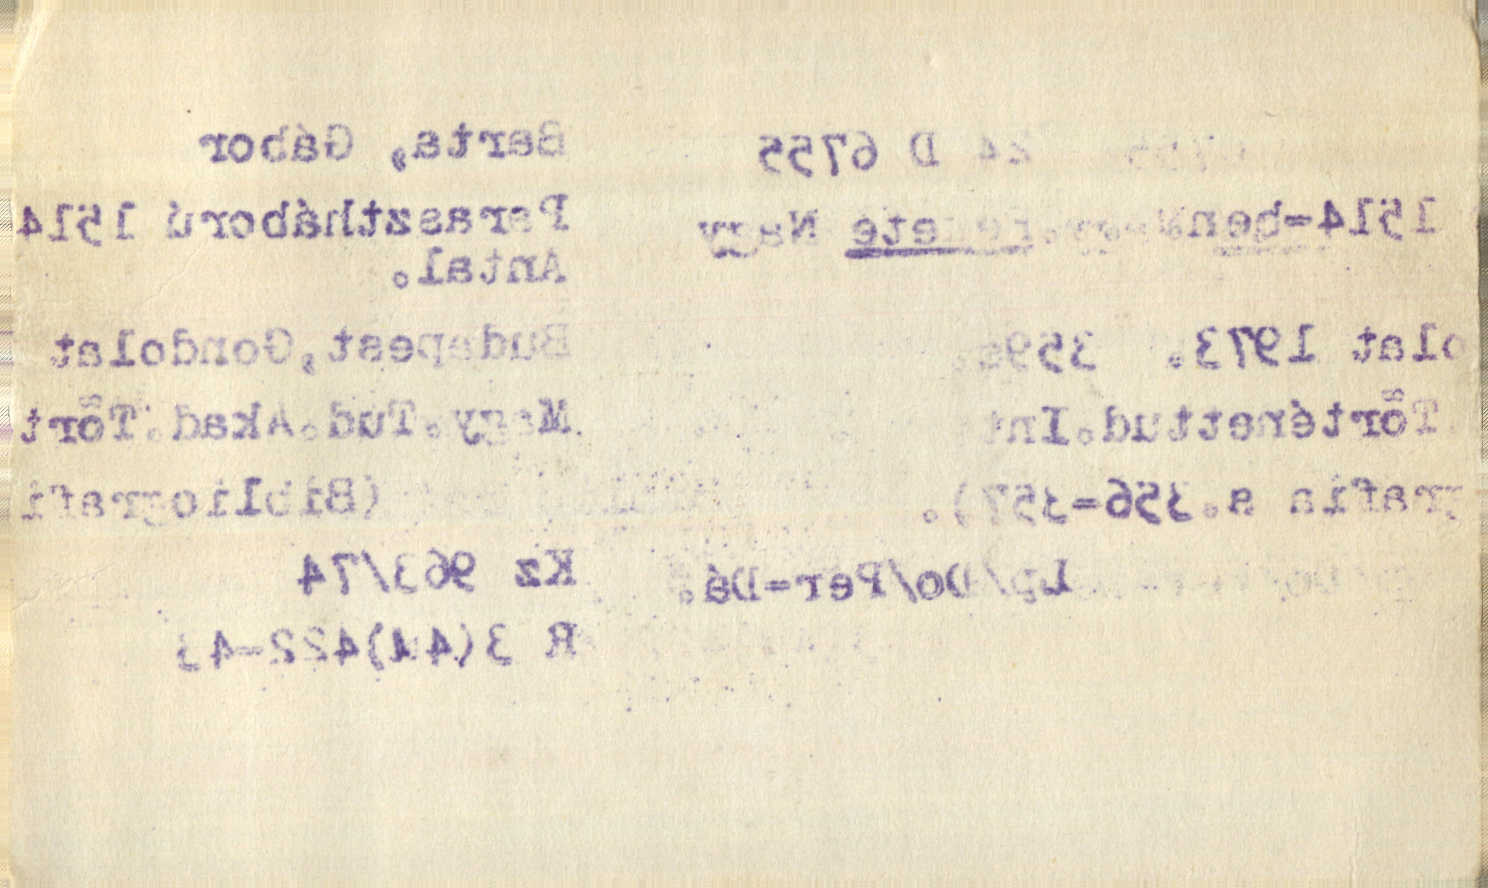 Barta, Gábor
Parasztháború 1514
Antal.
Budapest,Gondolat
Magy.Tud.Akad.Tört
(Bibliografi
Kz 963/74
R 3(44)422-43
24 D 6755
1514=ben ete Nagy
olat 1973. 359s.
Történettud.Int
grafia a.356=357).
Lp/Do/Per=Dá.